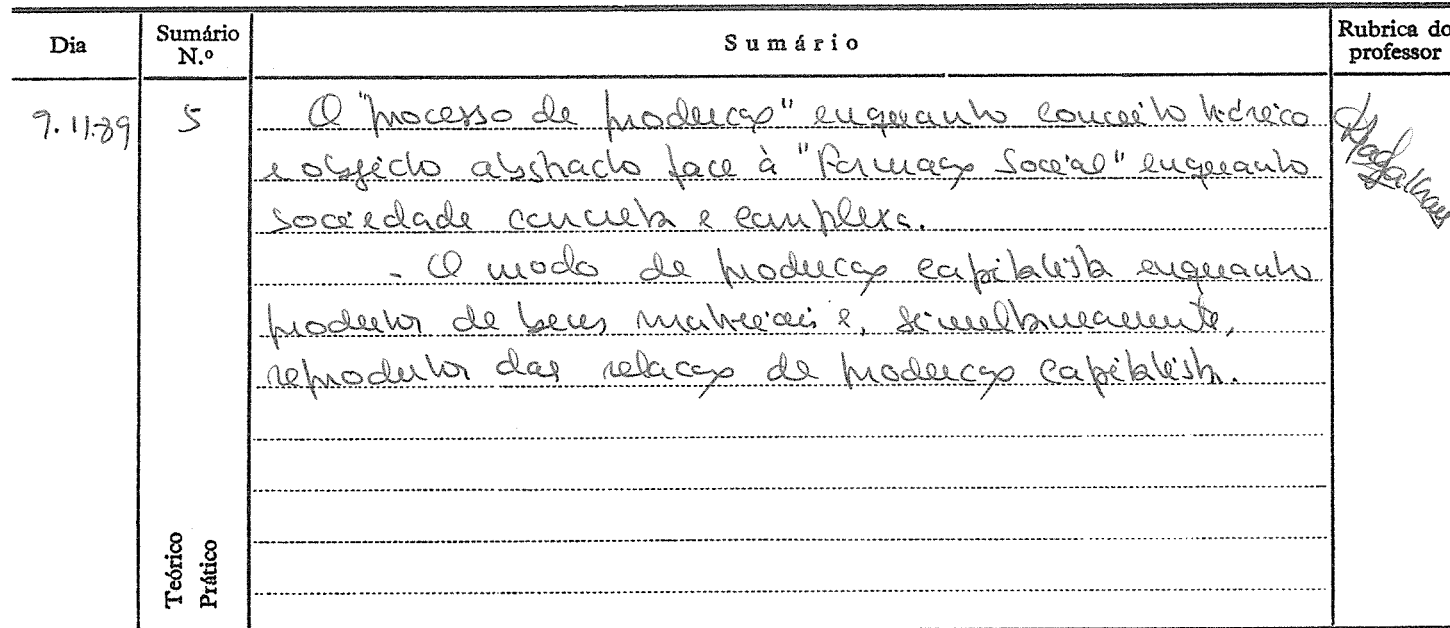 Dia
Sumário N.º
Sumário
Rubrica do professor
9.11.89
5
O "processo de produção" enquanto conceito teórico
e objecto abstracto face à "Formação Social" enquanto
sociedade concreta e complexa.
- O modo de produção capitalista enquanto
produtor de bens materiais e, simultaneamente,
reprodutor das relações de produção capitalista.
Magalhães
Teórico
Prático